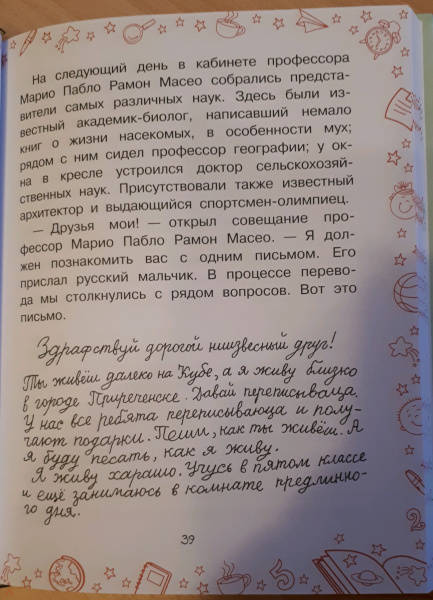 На следующий день в кабинете профессора
Марио Пабло Рамон Масео собрались предста-
вители самых различных наук. Здесь были из-
вестный академик-биолог, написавший немало
книг о жизни насекомых, в особенности мух;
рядом с ним сидел профессор географии; у ок-
на в кресле устроился доктор сельскохозяй-
ственных наук. Присутствовали также известный
архитектор и выдающийся спортсмен-олимпиец.
— Друзья мои! — открыл совещание про-
фессор Марио Пабло Рамон Масео. — Я дол-
жен познакомить вас с одним письмом. Его
прислал русский мальчик. В процессе перево-
да мы столкнулись с рядом вопросов. Вот это
письмо.
Здрафствуй дорогой неизвесный друг!
Ты живёш далеко на Кубе, а я живу близко
в городе Приреченске. Давай переписываца.
У нас все ребята переписывающа и полу-
чают подарки. Пешы, как ты живёш. А
я буду песать, как я живу.
Я живу харашо. Учусь в пятом классе
и ещё занимаюсь в комнате предлинно-
го дня.
39
2
5